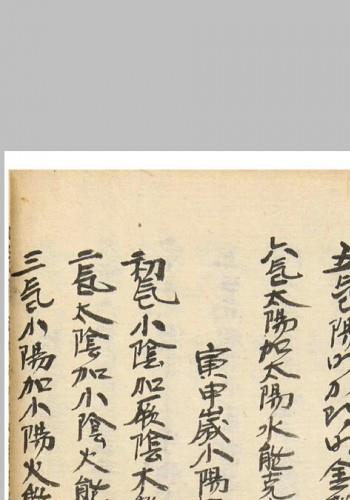 五气陽明加陽明金
六气太陽加太陽水能克
寅申歲小陽
初气小陰加厥陰木能
二气太陰加小陰火能
三气小陽加小陽火能